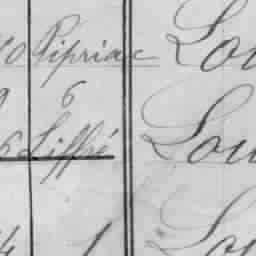 10 Pipriac Lou
9 6
6 Liffré Lou
4 1 Lou